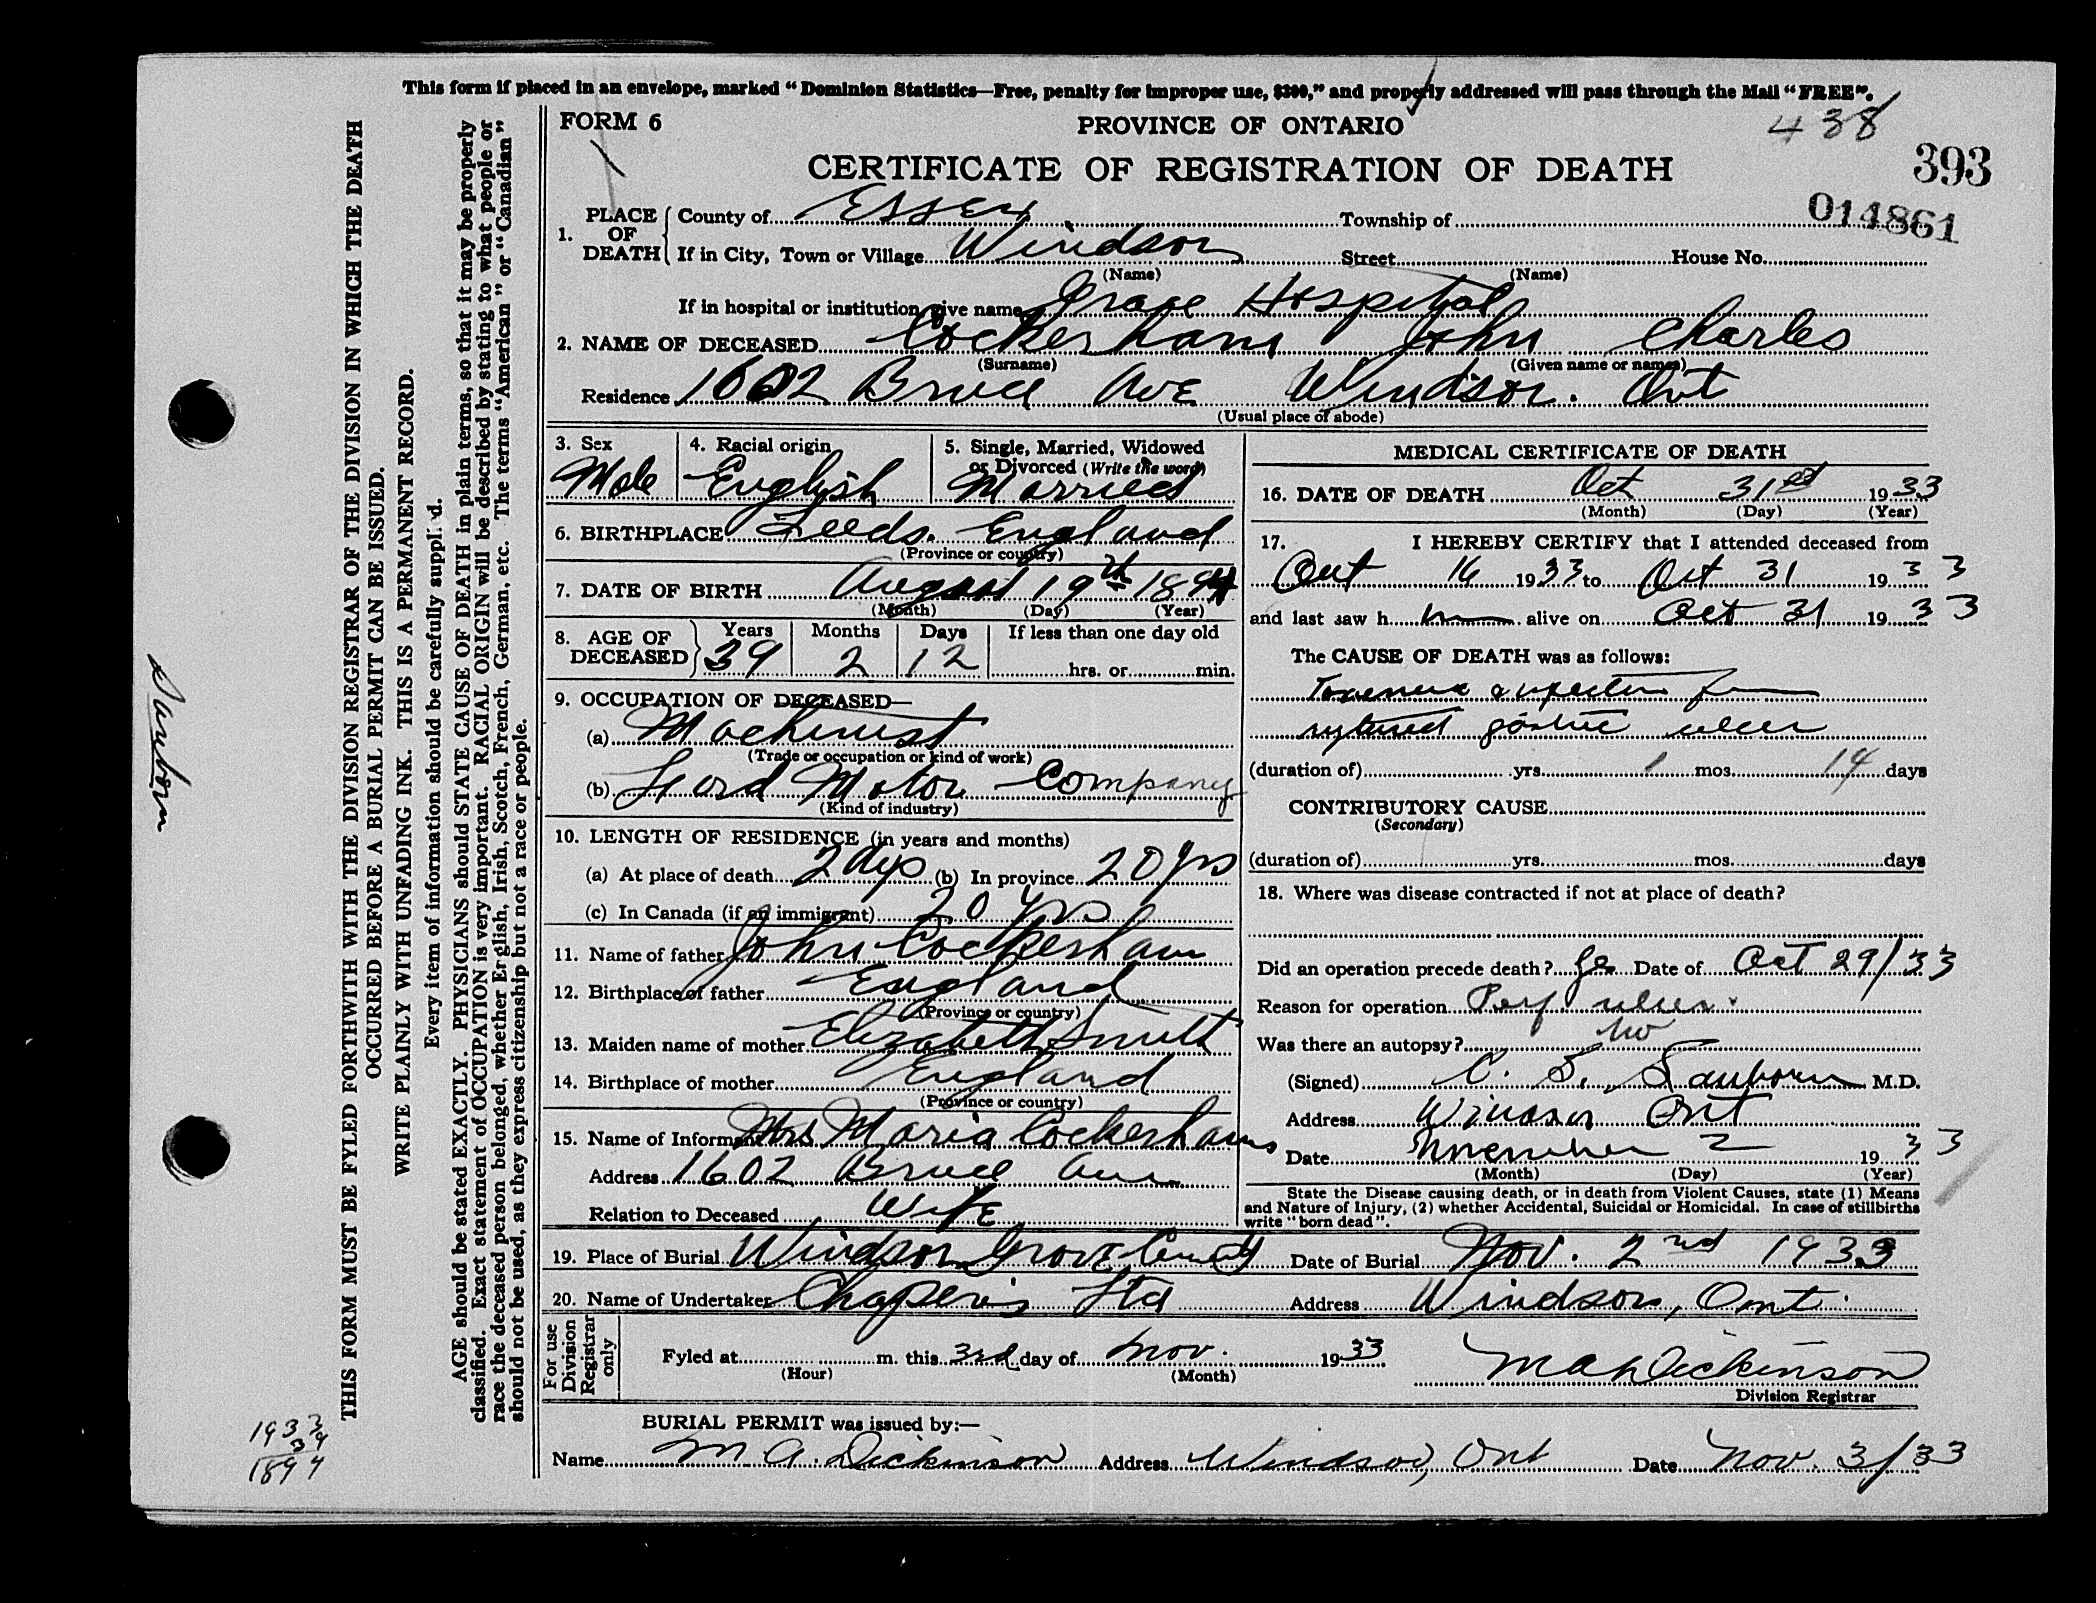 This form if placed in an envelope, marked "Dominion Statistics—Free, penalty for improper use, $300," and properly addressed will pass through the Mail "FREE".
FORM 6
PROVINCE OF ONTARIO
438
CERTIFICATE OF REGISTRATION OF DEATH
393
014861
1. PLACE OF DEATH County of Essex Township of
If in City, Town or Village Windsor Street House No.
(Name) (Name)
If in hospital or institution give name Grace Hospital
2. NAME OF DECEASED Cockerham John Charles
(Surname) (Given name or names)
Residence 1602 Bruce Ave Windsor. Ont
(Usual place of abode)
3. Sex Male
4. Racial origin English
5. Single, Married, Widowed or Divorced (Write the word) Married
6. BIRTHPLACE Leeds. England
(Province or country)
7. DATE OF BIRTH August 19th 1894
(Month) (Day) (Year)
8. AGE OF DECEASED Years 39 Months 2 Days 12 If less than one day old hrs. or min.
9. OCCUPATION OF DECEASED—
(a) Machinist
(Trade or occupation or kind of work)
(b) Ford Motor Company
(Kind of industry)
10. LENGTH OF RESIDENCE (in years and months)
(a) At place of death 2 dys (b) In province 20 yrs
(c) In Canada (if an immigrant) 20 yrs
11. Name of father John Cockerham
12. Birthplace of father England
(Province or country)
13. Maiden name of mother Elizabeth Smith
14. Birthplace of mother England
(Province or country)
15. Name of Informant Mrs Maria Cockerham
Address 1602 Bruce Ave
Relation to Deceased Wife
MEDICAL CERTIFICATE OF DEATH
16. DATE OF DEATH Oct 31st 1933
(Month) (Day) (Year)
17. I HEREBY CERTIFY that I attended deceased from
Oct 16 1933 to Oct 31 1933
and last saw h im alive on Oct 31 1933
The CAUSE OF DEATH was as follows:
Toxemia & infection from
ruptured gastric ulcer
(duration of) yrs. 1 mos. 14 days
CONTRIBUTORY CAUSE
(Secondary)
(duration of) yrs. mos. days
18. Where was disease contracted if not at place of death?
Did an operation precede death? Yes Date of Oct 29/33
Reason for operation Perf. ulcer.
Was there an autopsy? No
(Signed) C. S. Sanborn M.D.
Address Windsor Ont
Date November 2 1933
(Month) (Day) (Year)
State the Disease causing death, or in death from Violent Causes, state (1) Means
and Nature of Injury, (2) whether Accidental, Suicidal or Homicidal. In case of stillbirths
write "born dead".
19. Place of Burial Windsor Grove Date of Burial Nov. 2nd 1933
20. Name of Undertaker Ltd Address Windsor, Ont.
For use Division Registrar only
Fyled at m. this 3rd day of Nov. 1933
(Hour) (Month)
M A Dickinson
Division Registrar
BURIAL PERMIT was issued by:—
Name M. A. Dickinson Address Windsor, Ont Date Nov. 3/33
THIS FORM MUST BE FYLED FORTHWITH WITH THE DIVISION REGISTRAR OF THE DIVISION IN WHICH THE DEATH
OCCURRED BEFORE A BURIAL PERMIT CAN BE ISSUED.
WRITE PLAINLY WITH UNFADING INK. THIS IS A PERMANENT RECORD.
Every item of information should be carefully supplied.
AGE should be stated EXACTLY. PHYSICIANS should STATE CAUSE OF DEATH in plain terms, so that it may be properly
classified. Exact statement of OCCUPATION is very important. RACIAL ORIGIN will be described by stating to what people or
race the deceased person belonged, whether English, Irish, Scotch, French, German, etc. The terms "American" or "Canadian"
should not be used, as they express citizenship but not a race or people.
Sanborn
1933
39
1894